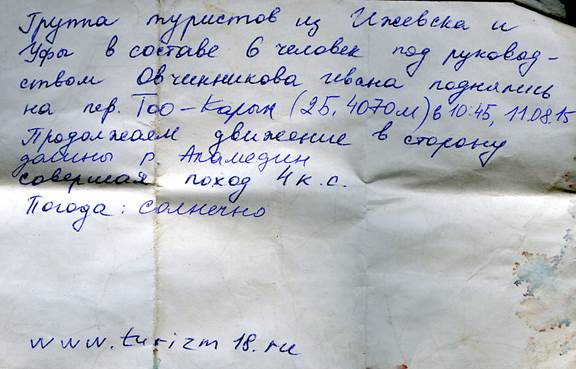 Группа туристов из Ижевска и
Уфы в составе 6 человек под руковод-
ством Овчинникова Ивана поднялись
на пер. Тоо-Карын (2Б, 4070м) в 10:45, 11.08.15
Продолжаем движение в сторону
долины р. Аламедин
совершая поход 4 к.с.
Погода: солнечно
www.turizm18.ru